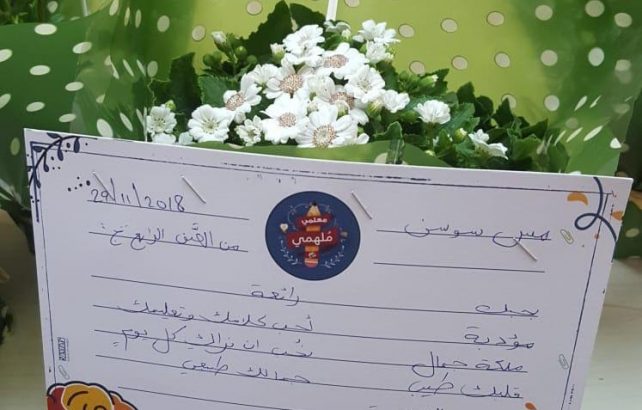 29/11/2018
معلمي
مُلهمي
مس سوسن
من الصَّف الرابع ج:
رائعة
بحبك
أحب كلامك وتعليمك
مؤدبة
نحب ان نراك كل يوم
ملكة جمال
جمالك طبيعي
قلبك طيب